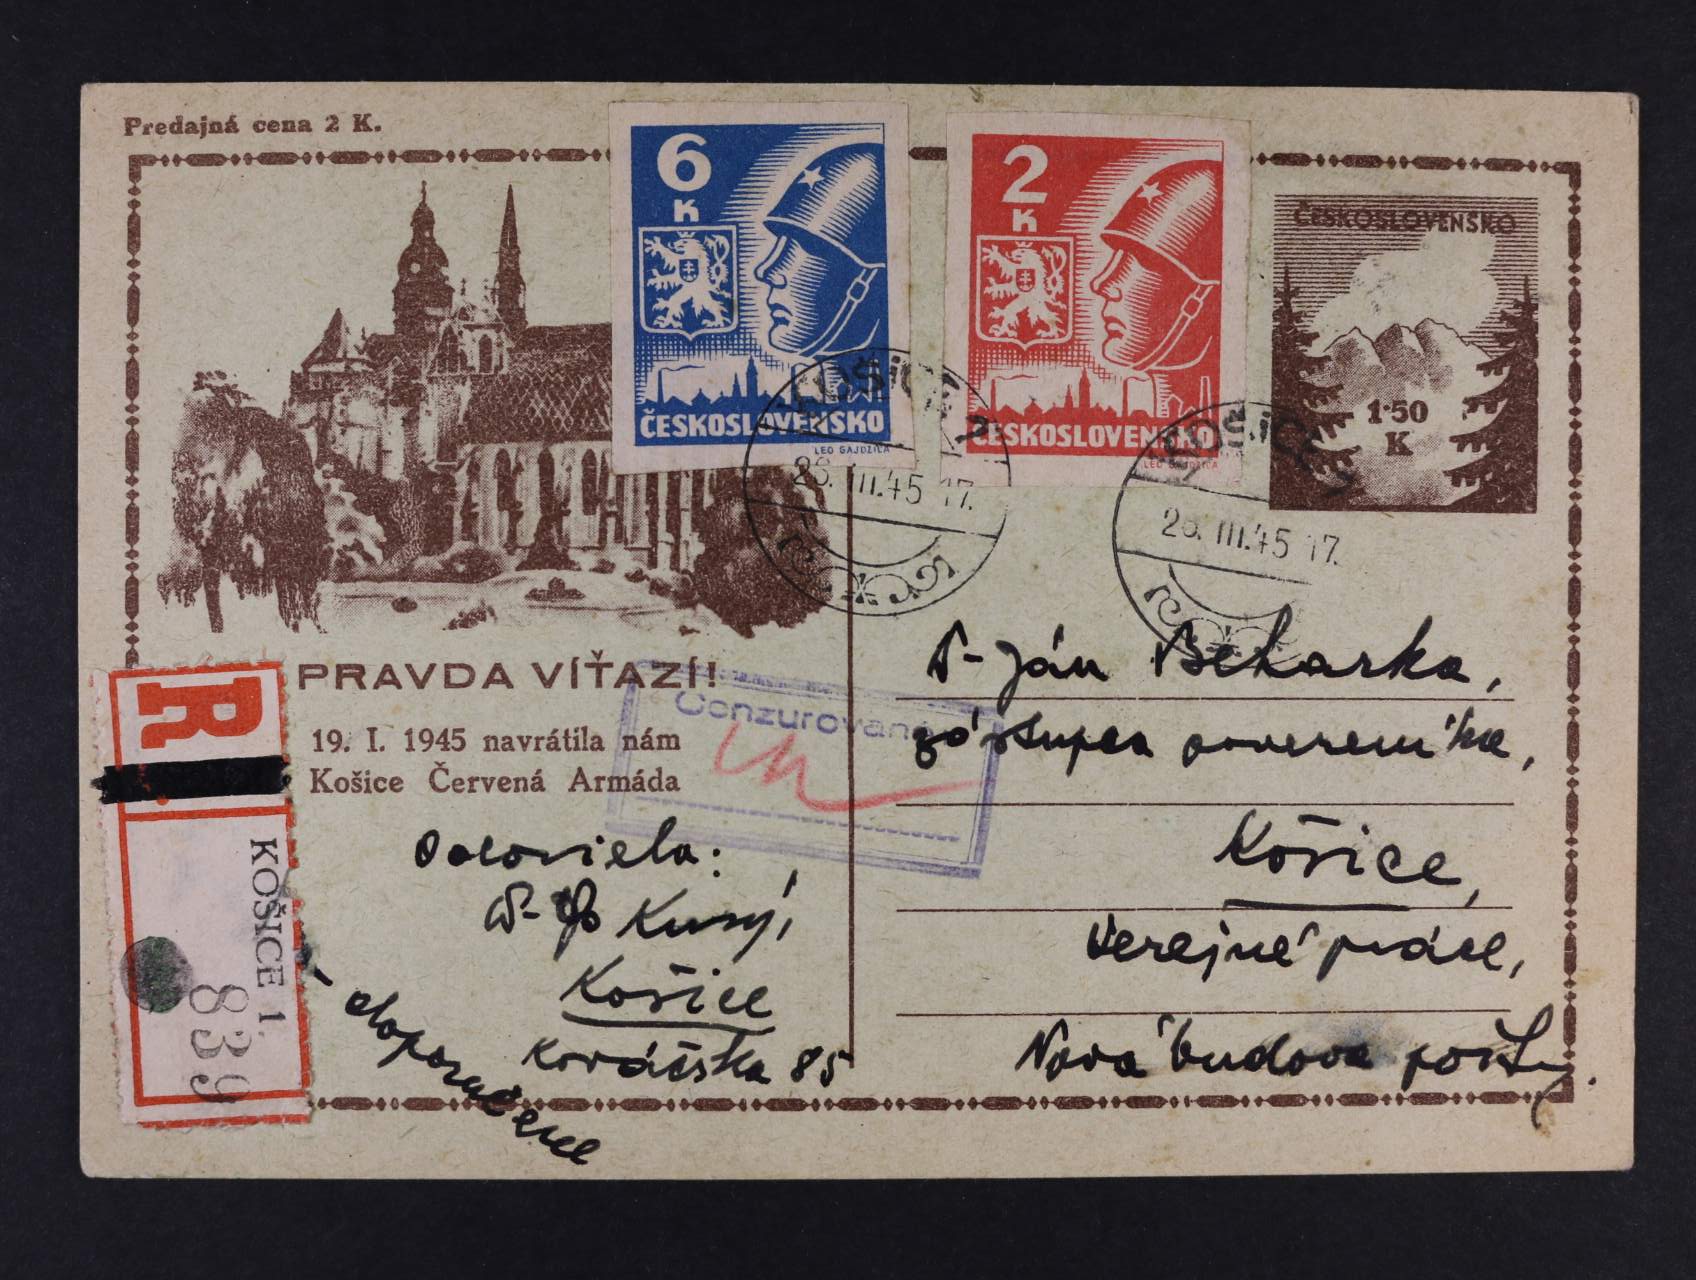 Predajná cena 2 K.
6
K
ČESKOSLOVENSKO
LEO GAJDZICA
2
K
ČESKOSLOVENSKO
LEO GAJDZICA
ČESKOSLOVENSKO
1·50
K
KOŠICE
III.45 17.
KOŠICE
III.45 17.
PRAVDA VÍŤAZÍ!
19. I. 1945 navrátila nám
Košice Červená Armáda
Cenzurované
R
KOŠICE 1.
839
Odosiela:
Kusý,
Košice
Kováčska 85
doporučene
Ján Bekarka,
zástupca povereníka,
Košice,
Verejné práce,
Nová budova pošty.